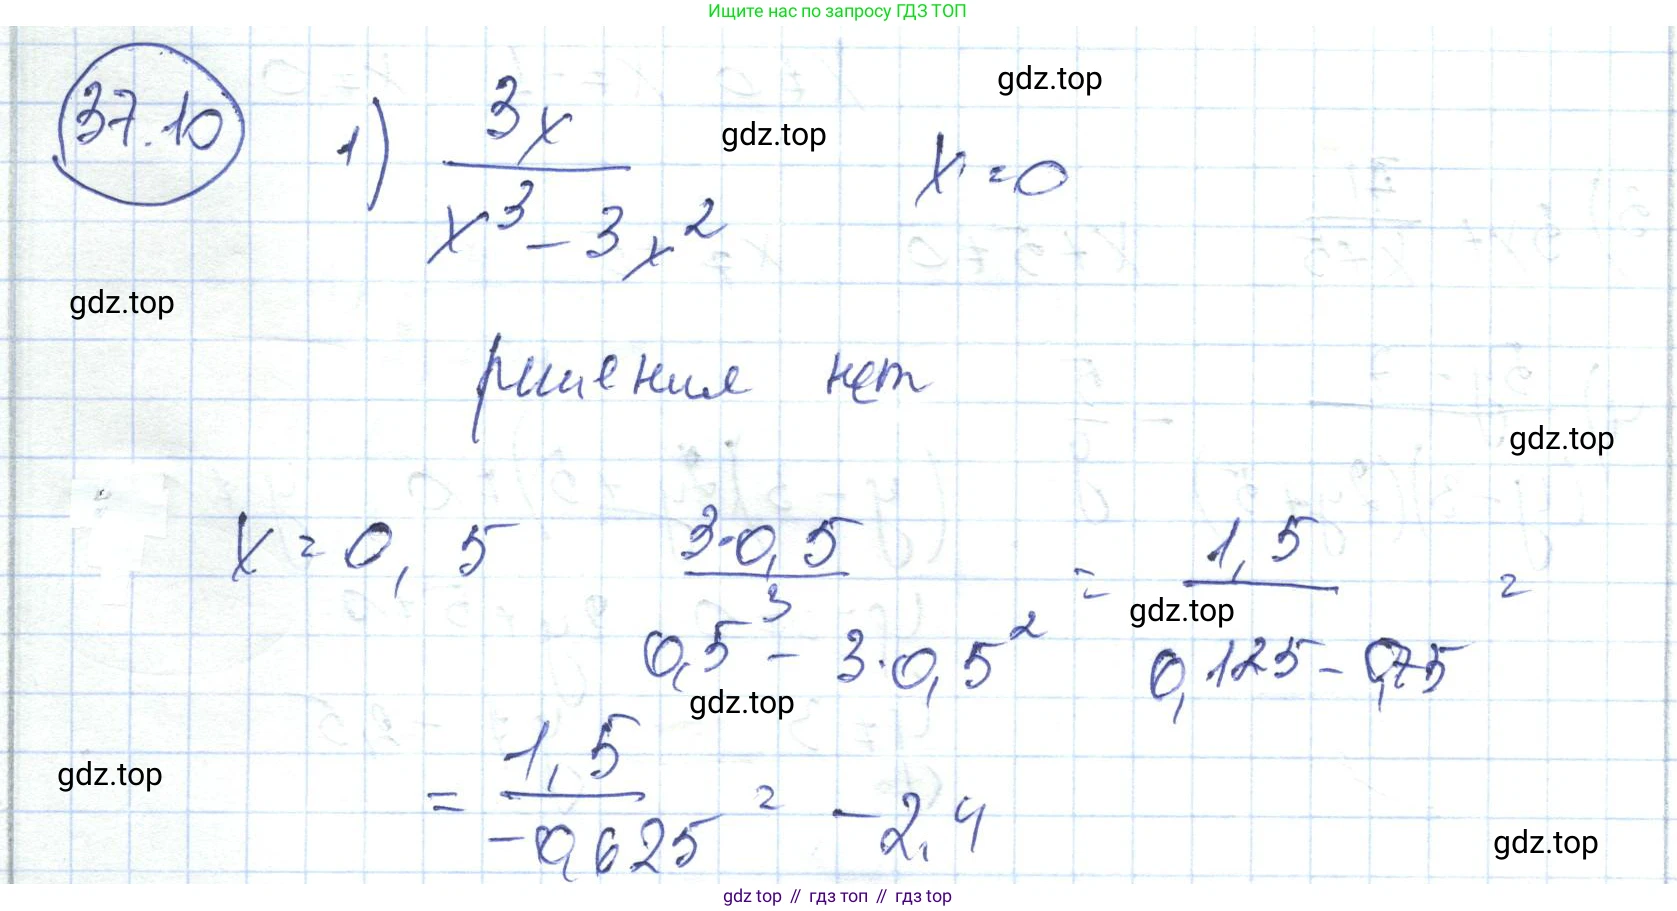 Ищите нас по запросу ГДЗ ТОП
37.10
1) 3x / (x³ - 3x²) x = 0
gdz.top
gdz.top
gdz.top
решения нет
gdz.top
x = 0,5 (3·0,5) / (0,5³ - 3·0,5²) = 1,5 / (0,125 - 0,75) =
gdz.top
gdz.top
= 1,5 / (-0,625) = -2,4
gdz.top
gdz.top
gdz top // гдз топ // гдз top